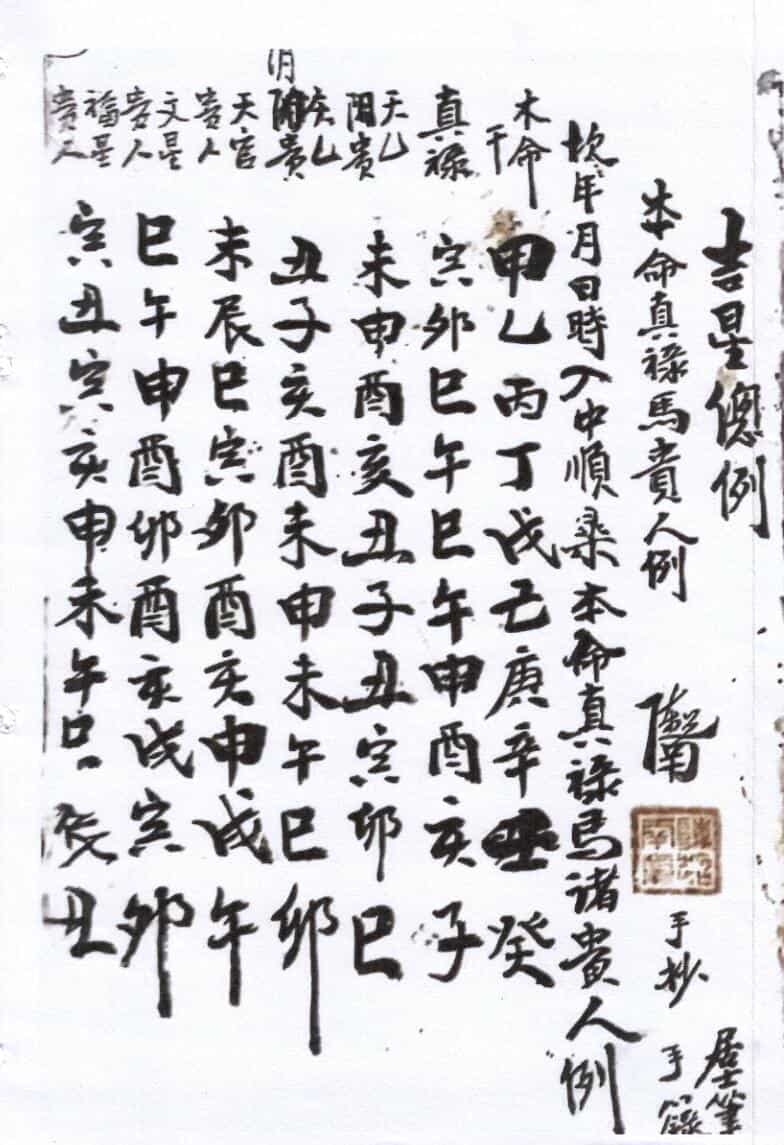 吉星總例
本命真禄馬貴人例
手抄
墨筆
手錄
次年月日時入中順桒本命真禄馬诸貴人例
本命干 甲乙丙丁戊己庚辛壬癸
真禄 寅卯巳午巳午申酉亥子
天乙阳貴 未申酉亥丑子丑寅卯巳
天乙阴貴 丑子亥酉未申未午巳卯
天官貴人 未辰巳寅卯酉亥申戌午
文星貴人 巳午申酉卯酉亥戌寅卯
福星貴人 寅丑寅亥申未午巳辰丑